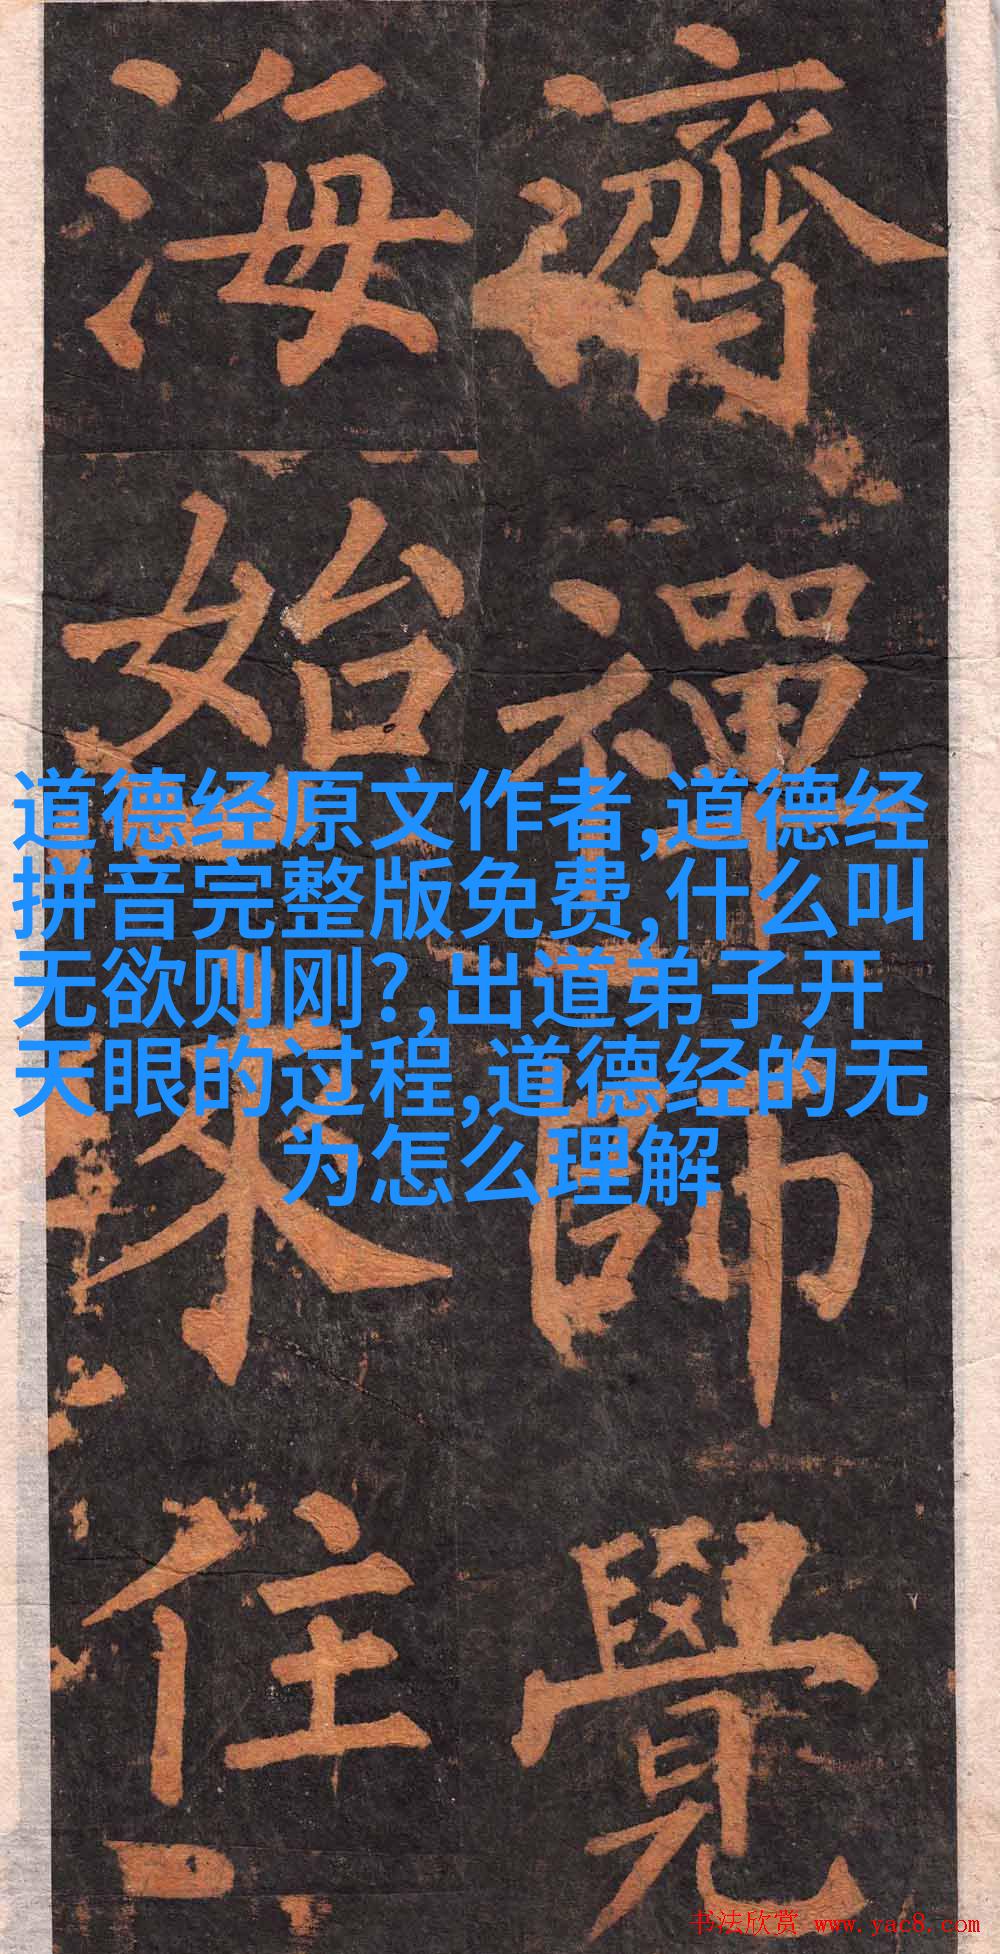 濟禪師覺
海始來住
道德经原文作者,道德经
拼音完整版免费,什么叫
无欲则刚?,出道弟子开
天眼的过程,道德经的无
为怎么理解
书法欣赏 www.yac8.com